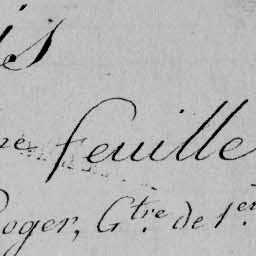 is
ne feuille
Roger, G.tre de 1.er